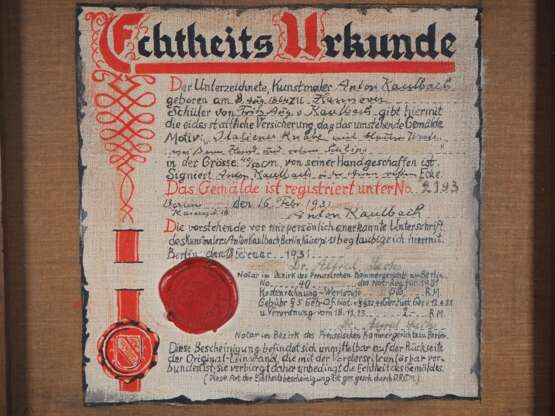 Echtheits Urkunde
Der Unterzeichnete, Kunstmaler Anton Kaulbach
geboren am 8. Aug. 1864 zu Hannover
Schüler von Fritz Aug. v. Kaulbach gibt hiermit
die eidesstattliche Versicherung, dag das umstehende Gemälde
Motiv: Italiener Knabe mit blauer
und rotem Schlips
in der Grösse von seiner Hand geschaffen ist.
Signiert Anton Kaulbach Ecke.
Das Gemälde ist registriert unter No. 2193
Berlin den 16 Febr. 1931
Anton Kaulbach
Die vorstehende vor mir persönlich anerkannte Unterschrift
des Kunstmalers Anton Kaulbach Berlin beglaubige ich hiermit.
Berlin, den Februar 1931.
Dr. Alfred
Notar im Bezirk des Preussischen Kammergerichts zu Berlin.
No. 40 des Not. Reg. für 1931
Kostenrechnung - Wert RM.
Gebühr § Not.
u Verordnung vom 18.11.23 2.- RM.
Dr. Alfred
Notar im Bezirk des Preussischen Kammergerichts zu Berlin.
Diese Bescheinigung befindet sich unmittelbar auf der Rückseite
der Original-Leinwand, die mit der Vorderseite unlösbar ver-
bunden ist; sie verbürgt daher unbedingt die Echtheit des Gemäldes.
(Diese Art der Echtheitsbescheinigung ist ges. gesch. durch D.R.G.M.)